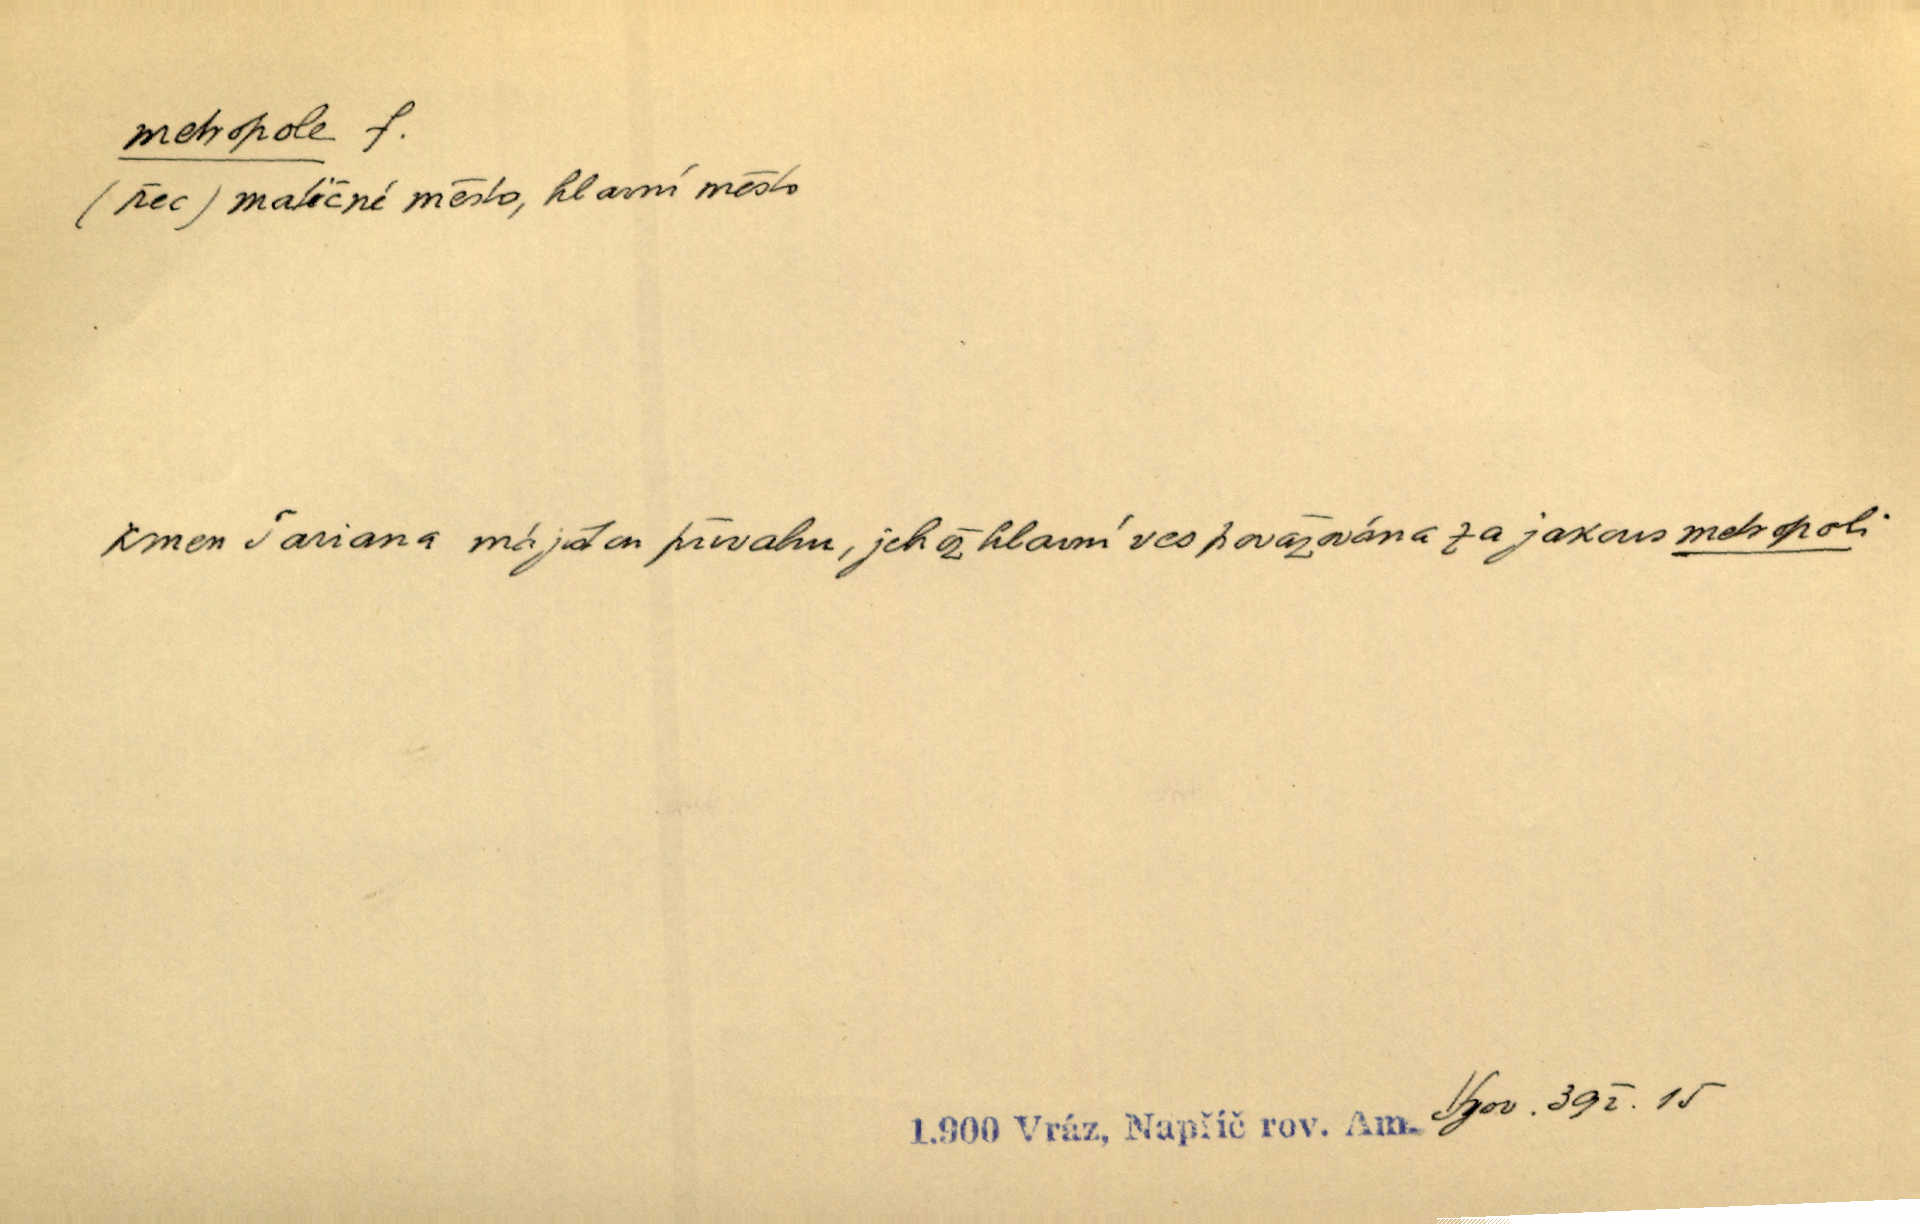 metropole f.
(řec) matičné město, hlavní město
Kmen Tariana má jaten převahu, jehož hlavní ves považována za jakous metropoli
1.900 Vráz, Napříč rov. Am. 392. 15